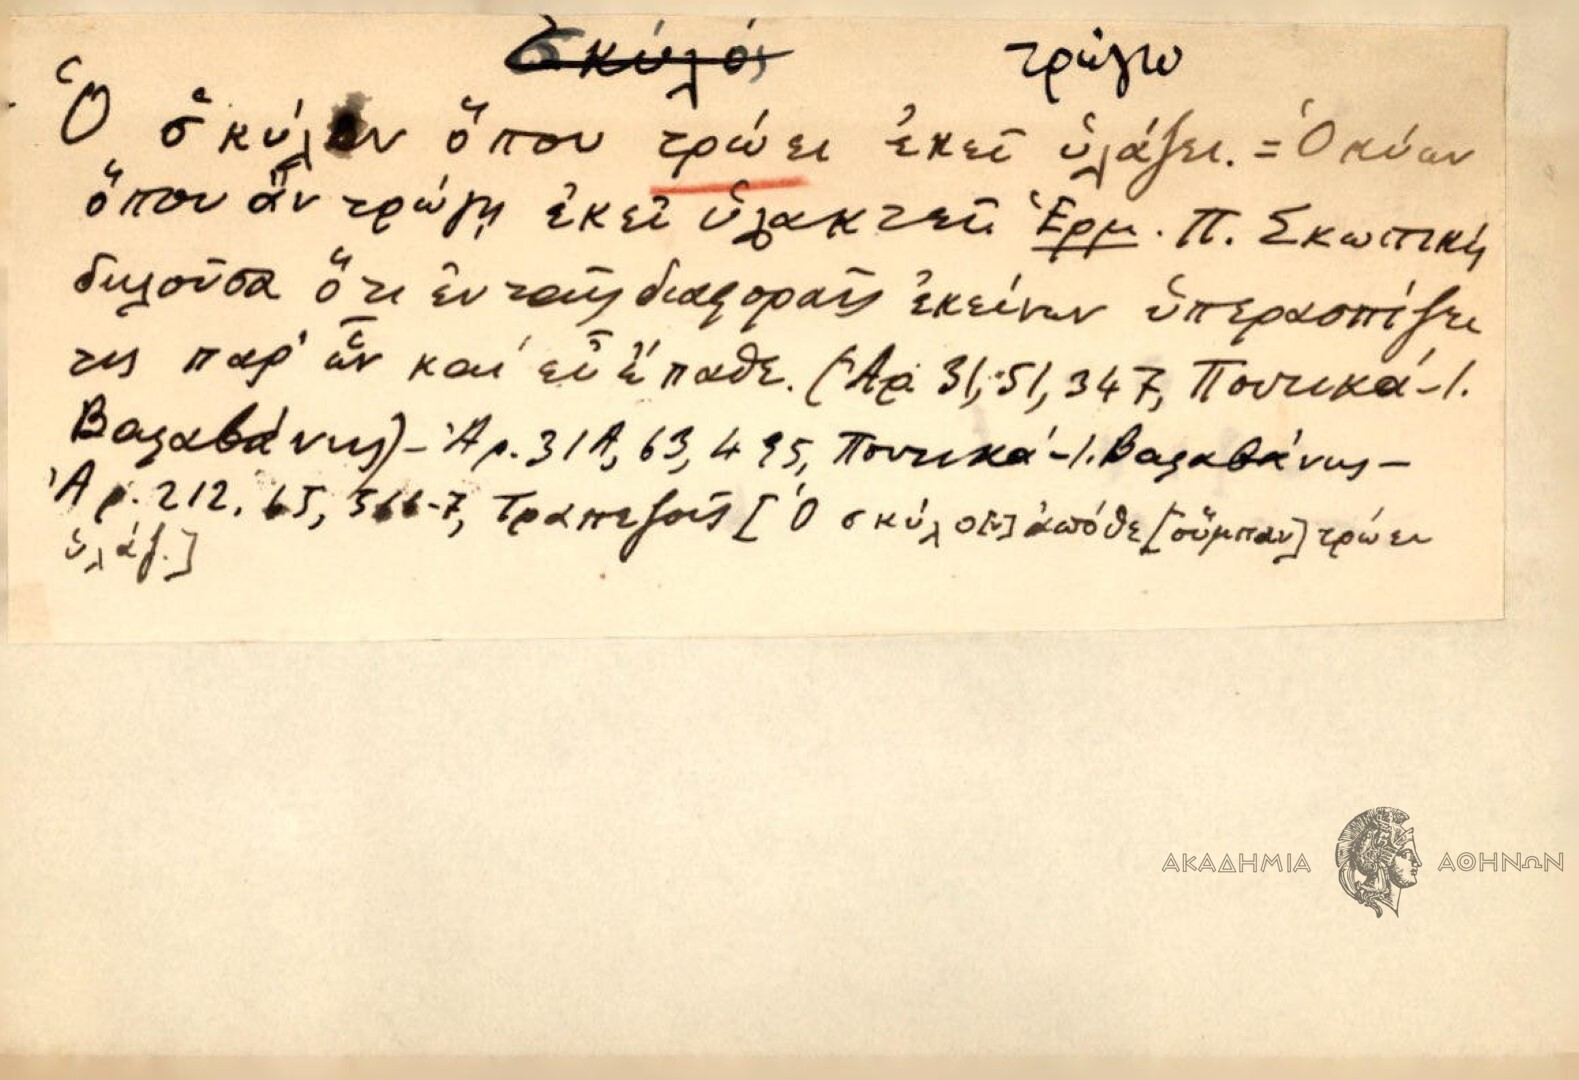 Σκύλος τρώγω
Ὁ σκύλον ὅπου τρώει ἐκεῖ ὑλάζει. = Ὁ κύων
ὅπου ἂν τρώγῃ ἐκεῖ ὑλακτεῖ Ἑρμ. Π. Σκωπτικὴ
δηλοῦσα ὅτι ἐν ταῖς διαφοραῖς ἐκείνων ὑπερασπίζει
τις παρ' ὧν καὶ εὖ ἔπαθε. (Ἀρ. 31, 51, 347, Ποντικά - Ι.
Βαλαβάνης) - Ἀρ. 31Α, 63, 495, Ποντικά - Ι. Βαλαβάνης -
Ἀρ. 212, 65, 366-7, Τραπεζοῦς [Ὁ σκύλο[ν] ἀπόθε [σύμπαν] τρώει
ὑλάζ.]
ΑΚΑΔΗΜΙΑ ΑΘΗΝΩΝ